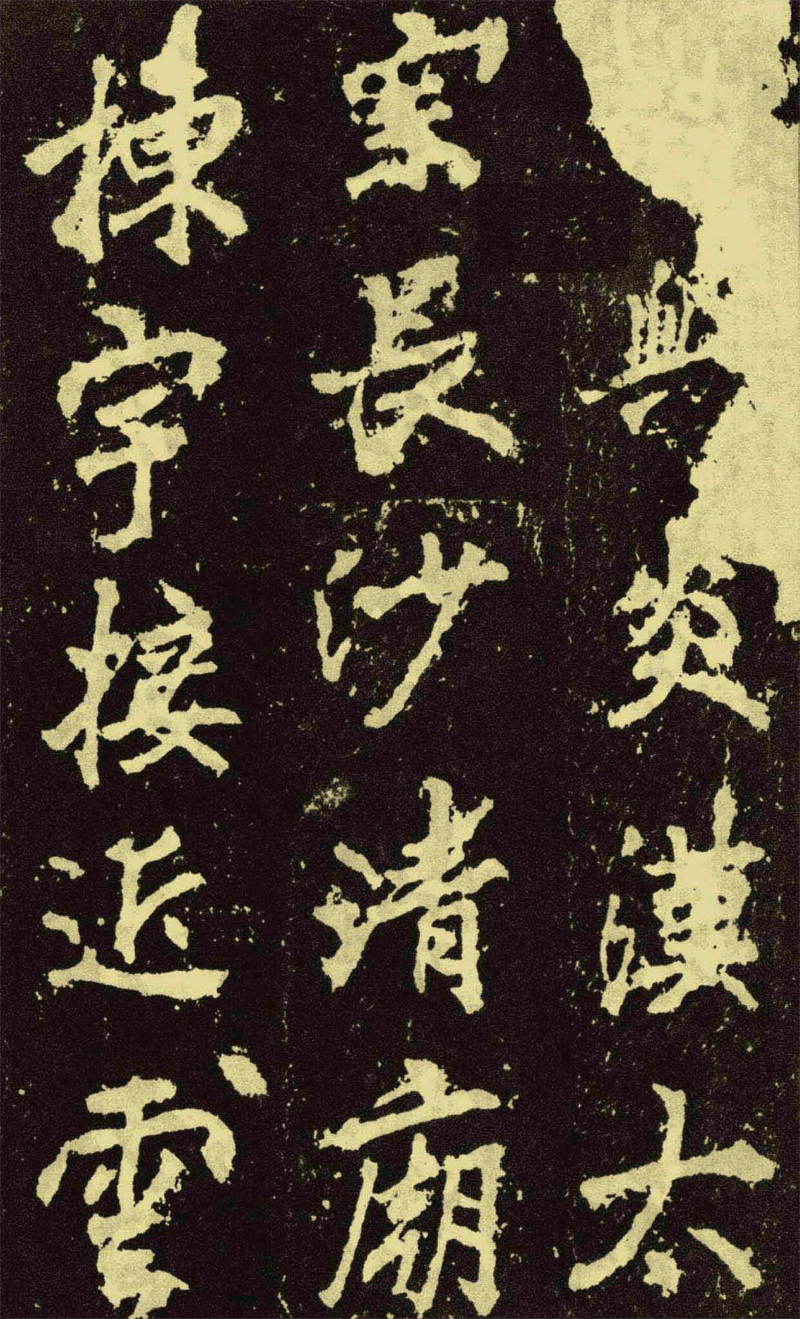 與炎漢太
宗長沙清廟
棟宇接近雲